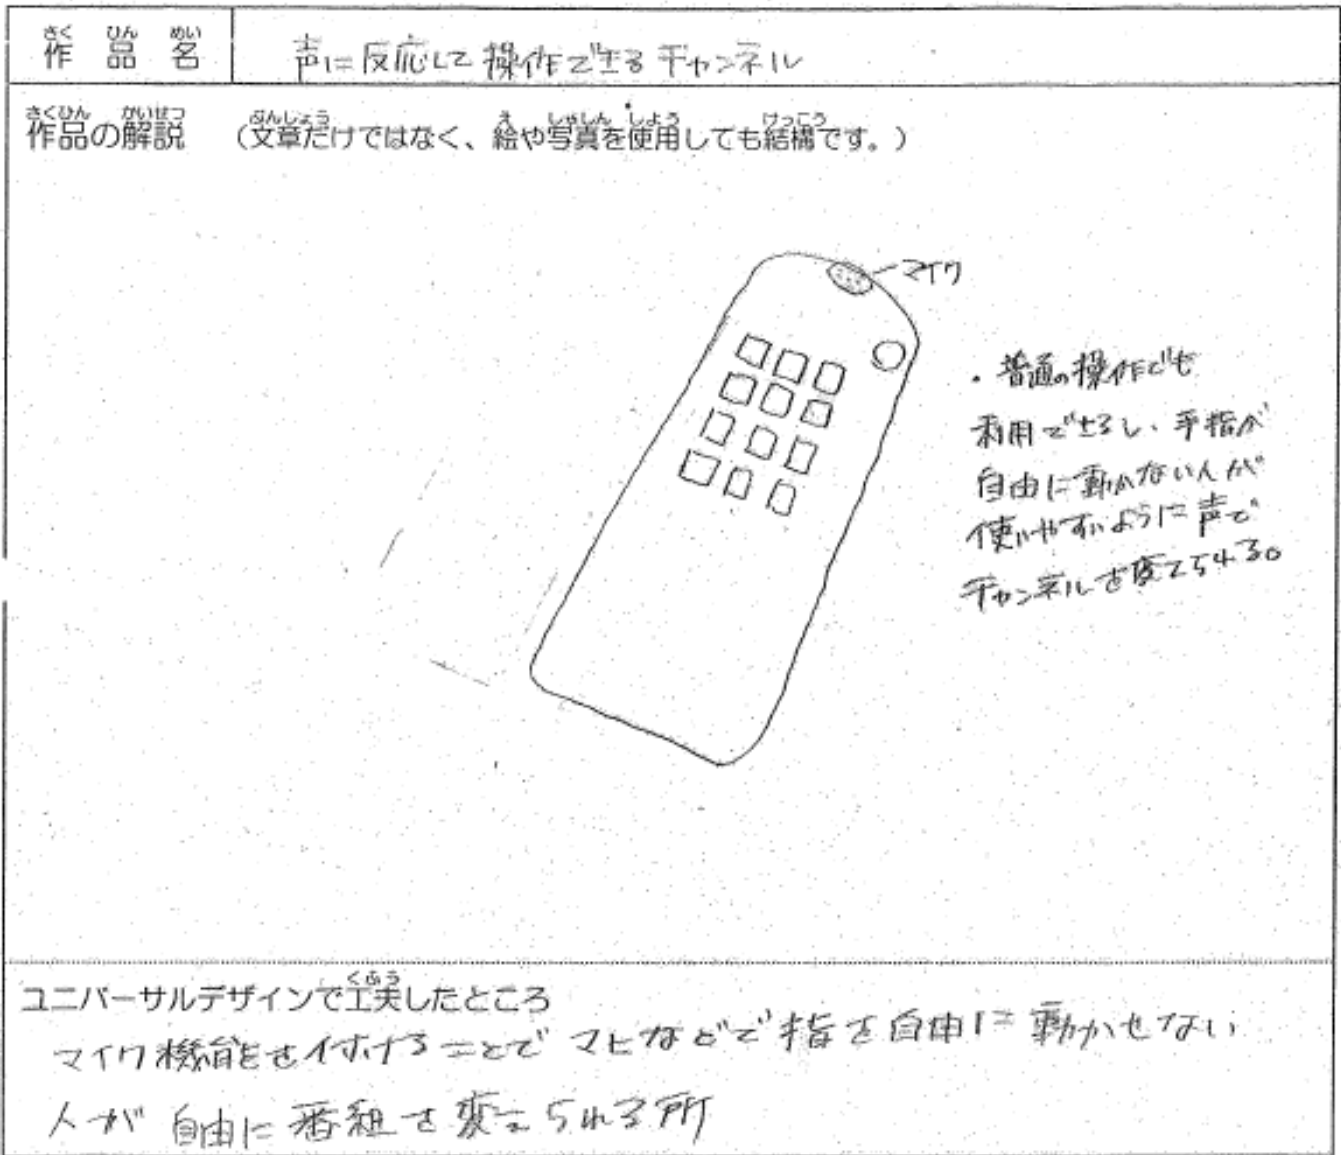 作品名 声に反応して操作できるチャンネル
作品の解説 (文章だけではなく、絵や写真を使用しても結構です。)
マイク
・普通の操作でも
利用できるし、手指が
自由に動かない人が
使いやすいように声で
チャンネルを変えられる。
ユニバーサルデザインで工夫したところ
マイク機能を付けることでマヒなどで指を自由に動かせない
人が自由に番組を変えられる所